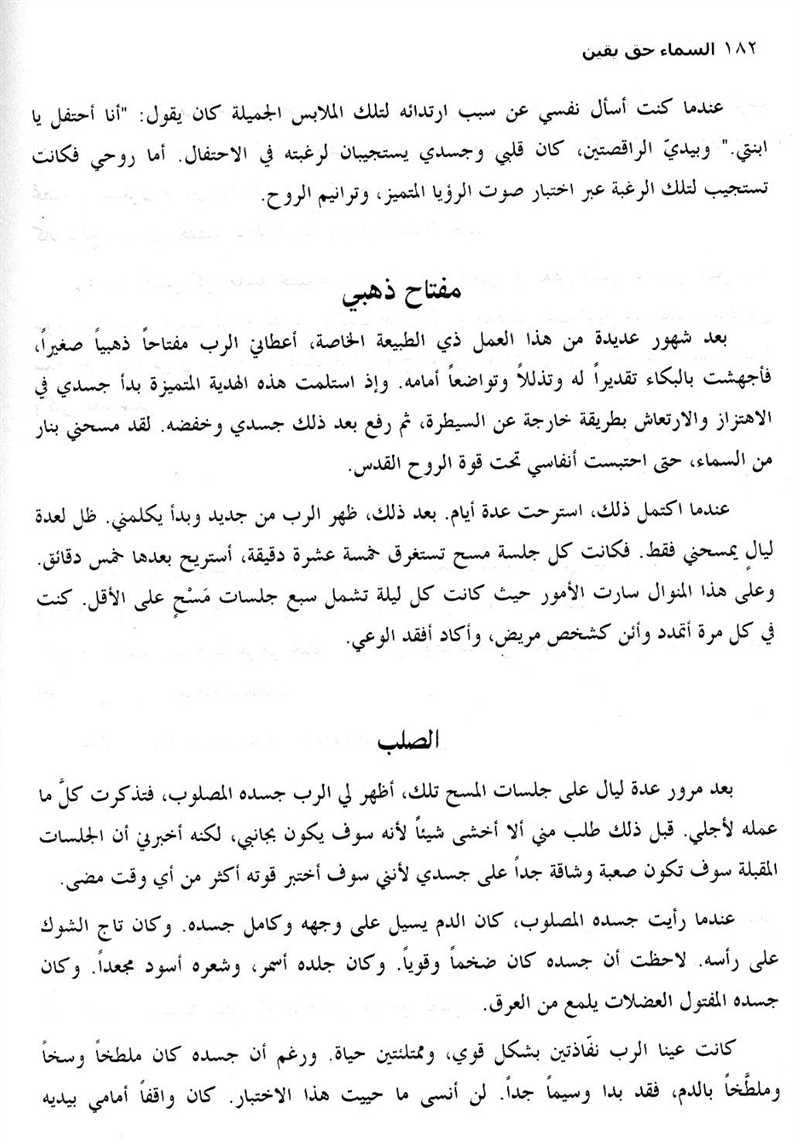 ١٨٢ السماء حق يقين
عندما كنت أسأل نفسي عن سبب ارتدائه لتلك الملابس الجميلة كان يقول: "أنا أحتفل يا
ابنتي." وبيديّ الراقصتين، كان قلبي وجسدي يستجيبان لرغبته في الاحتفال. أما روحي فكانت
تستجيب لتلك الرغبة عبر اختبار صوت الرؤيا المتميز، وترانيم الروح.
مفتاح ذهبي
بعد شهور عديدة من هذا العمل ذي الطبيعة الخاصة، أعطاني الرب مفتاحاً ذهبياً صغيراً،
فأجهشت بالبكاء تقديراً له وتذللاً وتواضعاً أمامه. وإذ استلمت هذه الهدية المتميزة بدأ جسدي في
الاهتزاز والارتعاش بطريقة خارجة عن السيطرة، ثم رفع بعد ذلك جسدي وخفضه. لقد مسحني بنار
من السماء، حتى احتبست أنفاسي تحت قوة الروح القدس.
عندما اكتمل ذلك، استرحت عدة أيام. بعد ذلك، ظهر الرب من جديد وبدأ يكلمني. ظل لعدة
ليالٍ يمسحني فقط. فكانت كل جلسة مسح تستغرق خمسة عشرة دقيقة، أستريح بعدها خمس دقائق.
وعلى هذا المنوال سارت الأمور حيث كانت كل ليلة تشمل سبع جلسات مَسْحٍ على الأقل. كنت
في كل مرة أتمدد وأئن كشخص مريض، وأكاد أفقد الوعي.
الصلب
بعد مرور عدة ليال على جلسات المسح تلك، أظهر لي الرب جسده المصلوب، فتذكرت كلَّ ما
عمله لأجلي. قبل ذلك طلب مني ألا أخشى شيئاً لأنه سوف يكون بجانبي، لكنه أخبرني أن الجلسات
المقبلة سوف تكون صعبة وشاقة جداً على جسدي لأنني سوف أختبر قوته أكثر من أي وقت مضى.
عندما رأيت جسده المصلوب، كان الدم يسيل على وجهه وكامل جسده. وكان تاج الشوك
على رأسه. لاحظت أن جسده كان ضخماً وقوياً. وكان جلده أسمر، وشعره أسود مجعداً. وكان
جسده المفتول العضلات يلمع من العرق.
كانت عينا الرب نفّاذتين بشكل قوي، وممتلئتين حياة. ورغم أن جسده كان ملطخاً وسخاً
وملطَّخاً بالدم، فقد بدا وسيماً جداً. لن أنسى ما حييت هذا الاختبار. كان واقفاً أمامي بيديه